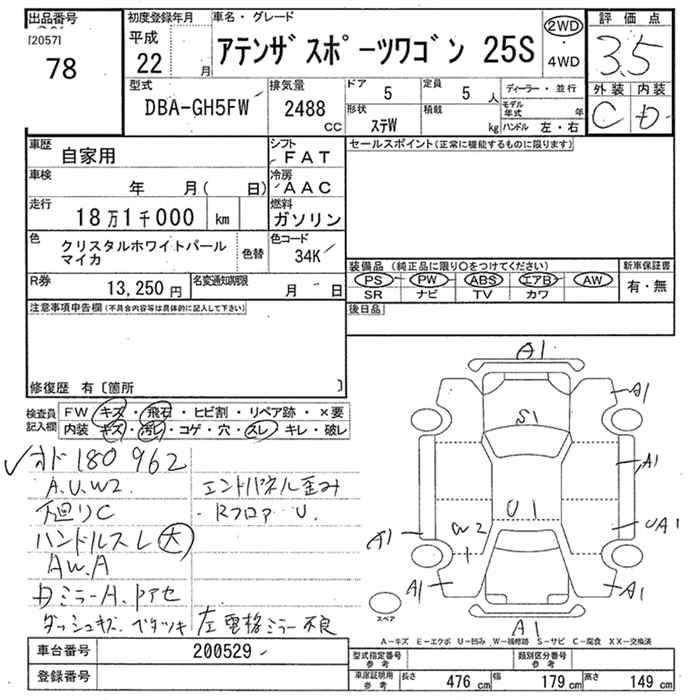 出品番号
[2057]
78
初度登録年月
平成
22 月
車名・グレード
アテンザスポーツワゴン 25S
2WD
・
4WD
評価点
3.5
外装 内装
C D
型式
DBA-GH5FW
排気量
2488 CC
ドア
5
定員
5 人
形状
ステW
積載
kg
ディーラー・並行
モデル年式 年
ハンドル 左・右
車歴
自家用
シフト
FAT
車検
年 月( 日)
冷房
AAC
走行
18万1千000 km
燃料
ガソリン
色
クリスタルホワイトパール
マイカ
色替
色コード
34K
R券
13,250 円
名変通知期限
月 日
セールスポイント(正常に機能するものに限ります)
装備品 (純正品に限り○をつけてください)
新車保証書
PS PW ABS エアB AW
SR ナビ TV カワ
有・無
後日品
注意事項申告欄(不具合内容等は具体的に記入して下さい)
修復歴 有〔箇所 〕
検査員
記入欄
FW キズ・飛石・ヒビ割・リペア跡・×要
内装 キズ・汚レ・コゲ・穴・スレ・キレ・破レ
✓オド180962
A.U.W2
下廻りC
ハンドルスレ大
AW.A
カミラーA.ドアセ
ダッシュキズ.ベタツキ
エンドパネル歪み
・Rフロア U.
左電格ミラー不良
A1
A1
S1
A1
U1
W2
UA1
A1
A1
A1
A1
スペア
A-キズ E-エクボ U-凹み W-補修跡 S-サビ C-腐食 XX-交換済
車台番号
200529
登録番号
型式指定番号
参考
類別区分番号
参考
車庫証明用
参考
長さ 476 cm 幅 179 cm 高さ 149 cm